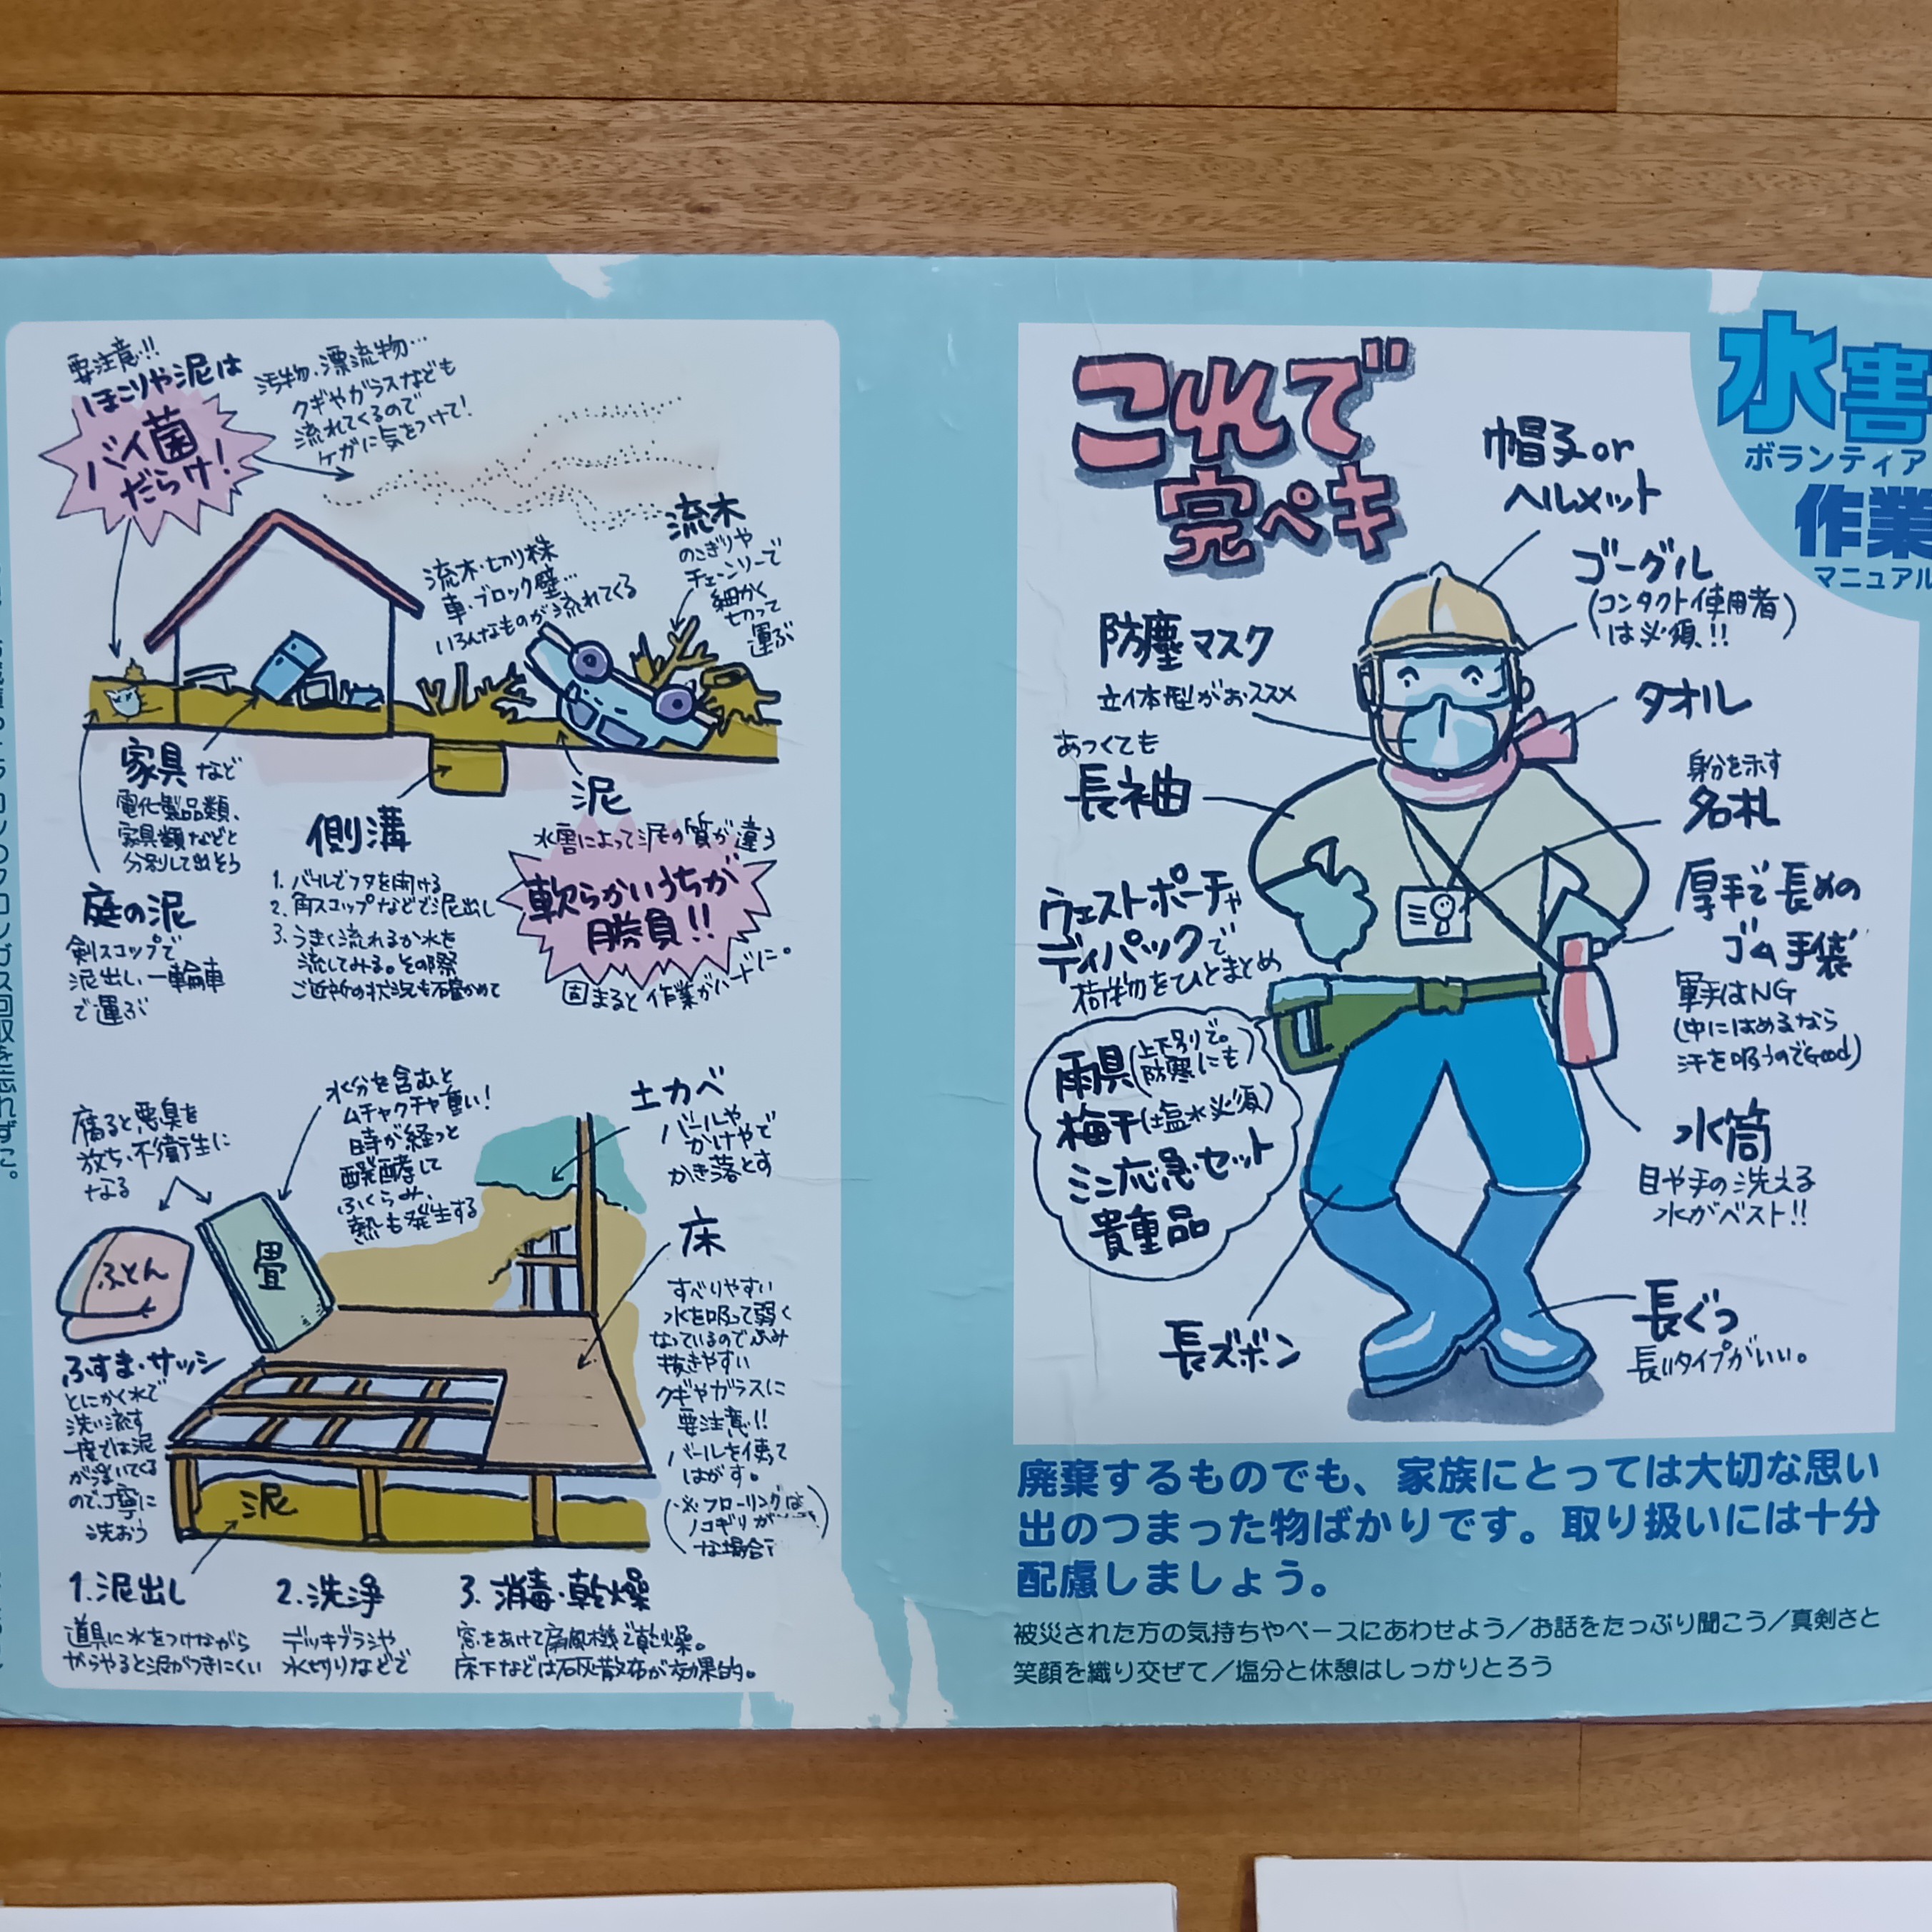 要注意!!
ほこりや泥は
バイ菌
だらけ!
汚物、漂流物…
クギやガラスなども
流れてくるので
ケガに気をつけて!
流木・切り株
車・ブロック壁…
いろんなものが流れてくる
流木
のこぎりや
チェーンソーで
細かく
切って
運ぶ
家具など
電化製品類、
家具類などと
分別して出そう
庭の泥
剣スコップで
泥出し、一輪車
で運ぶ
側溝
1. バールでフタを開ける
2. 角スコップなどで泥出し
3. うまく流れるか水を
流してみる。その際
ご近所の状況も確かめて
泥
水害によって泥の質が違う
軟らかいうちが
勝負!!
固まると作業がハードに。
腐ると悪臭を
放ち、不衛生に
なる
水分を含むと
ムチャクチャ重い!
時が経つと
醗酵して
ふくらみ、
熱も発生する
土カベ
バールや
かけやで
かき落とす
ふとん
畳
床
すべりやすい
水を吸って弱く
なっているのでふみ
抜きやすい
クギやガラスに
要注意!!
バールを使って
はがす。
(※フローリングは
ノコギリが
な場合
ふすま・サッシ
とにかく水で
洗い流す
一度では泥
が浮いてくる
ので丁寧に
洗おう
泥
1.泥出し
道具に水をつけながら
やらやると泥がつきにくい
2.洗浄
デッキブラシや
水切りなどで
3.消毒・乾燥
窓をあけて扇風機で乾燥。
床下などは石灰散布が効果的。
水害
ボランティア
作業
マニュアル
これで
完ペキ
帽子or
ヘルメット
ゴーグル
(コンタクト使用者)
は必須!!
防塵マスク
立体型がおススメ
タオル
あつくても
長袖
身分を示す
名札
ウエストポーチや
ディパックで
荷物をひとまとめ
厚手で長めの
ゴム手袋
軍手はNG
(中にはめるなら
汗を吸うのでGood)
雨具(上下別で。
防寒にも)
梅干(塩水必須)
ミニ応急セット
貴重品
水筒
目や手の洗える
水がベスト!!
長ズボン
長ぐつ
長いタイプがいい。
廃棄するものでも、家族にとっては大切な思い
出のつまった物ばかりです。取り扱いには十分
配慮しましょう。
被災された方の気持ちやペースにあわせよう／お話をたっぷり聞こう／真剣さと
笑顔を織り交ぜて／塩分と休憩はしっかりとろう